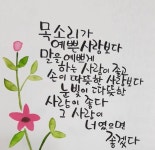 목소리가
예쁜사람보다
말을 예쁘게
하는 사람이 좋고
손이 따뜻한 사람보다
눈빛이 따뜻한
사람이 좋다
그 사람이
너였으면
좋겠다